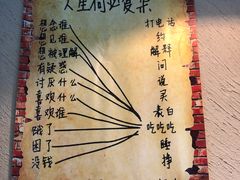 人生何必复杂
想谁 打电话
想见谁 约
想被理解 解释
有疑惑 问
讨厌什么 说
喜欢什么 买
喜欢谁 表白
饿了 吃吃吃
困了 睡
没钱 挣